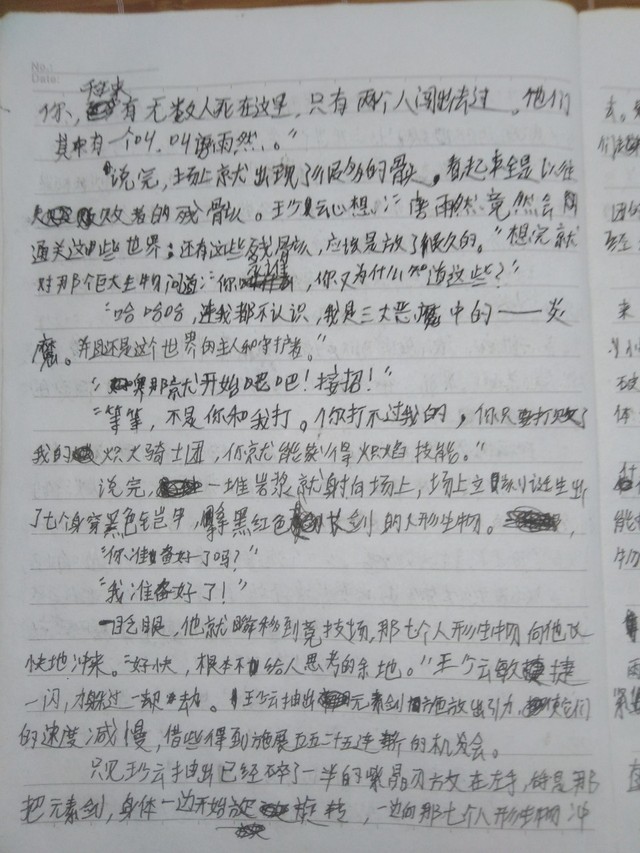 No.:
Date:
你,有无数人死在这里,只有两个人闯出去过。他们
其中有一个叫,叫谢雨然、。"
"说完,场上就出现了很多的骨头。看起来全是以往
败者的残骨。王少云心想:"雨然竟然会
通关这些世界;还有这些残骨,应该是放了很久的。"想完就
对那个巨大生物问道:"你,你又为什么知道这些?"
"哈哈哈,连我都不认识,我是三大恶魔中的——炎
魔。并且还是这个世界的主人和守护者。"
"那就开始吧!接招!"
"等等,不是你和我打。你打不过我的,你只要打败了
我的火骑士团,你就能获得火焰技能。"
说完,一堆岩浆就射向场上,场上立刻诞生出
了七个身穿黑色铠甲,拿黑红色长剑的人形生物。
"你准备好了吗?"
"我准备好了!"
一眨眼,他就瞬移到竞技场,那七个人形生物向他
快地冲来。"好快,根本不给人思考的余地。"王少云敏捷
一闪,躲过一劫。王少云抽出元素剑放出引力,使它们
的速度减慢,借些得到施展五五二十五连斩的机会。
只见王少云抽出已经碎了一半的紫晶刃放在左手,
把元素剑,身体一边开始旋转,一边向那七个人形生物冲